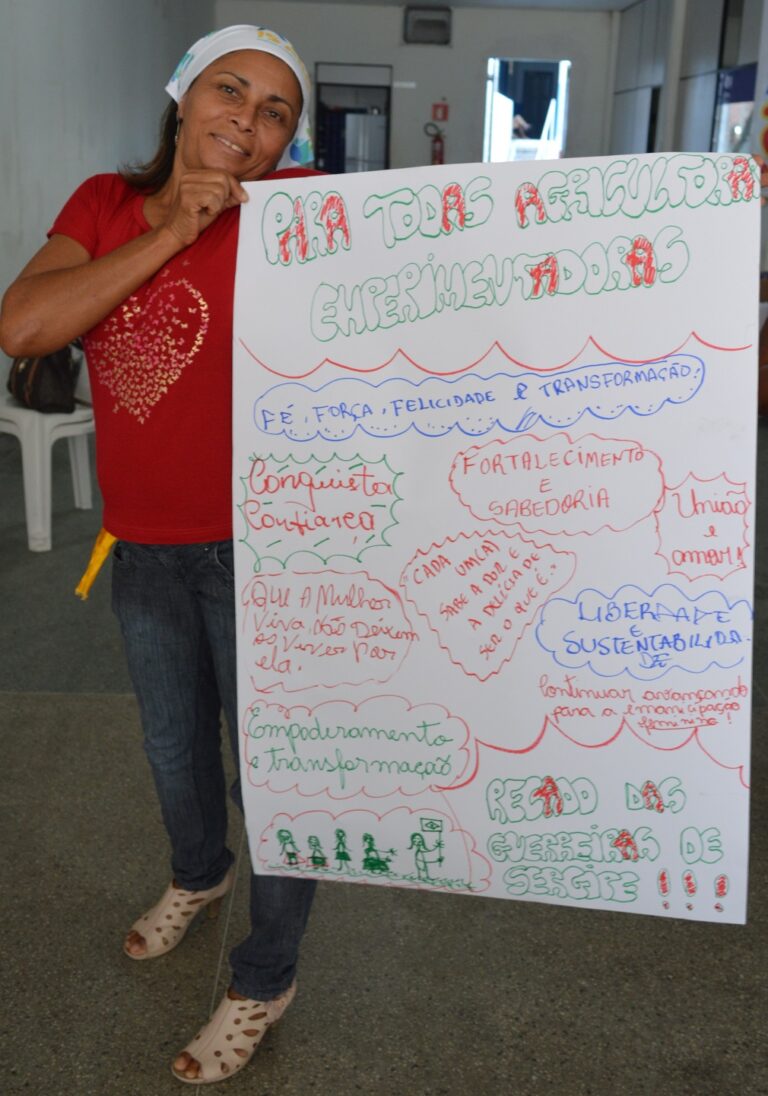 PARA TODAS AGRICULTORA
EMPERIMENTADORAS
FÉ, FORÇA, FELICIDADE e TRANSFORMAÇÃO!
Conquista
Confiança
FORTALECIMENTO
E
SABEDORIA
União
e
amor!
"CADA UM(A)
SABE A DOR E
A DELÍCIA DE
SER O QUE É..."
QUE A Mulher
Viva, Não Deixem
os Viver Por
ela.
LIBERDADE
E
SUSTENTABILIDA
DE
Continuar avançando
para a emancipação
feminina!
Empoderamento
e transformação
RECADO DAS
GUERREIRAS DE
SERGIPE !!!